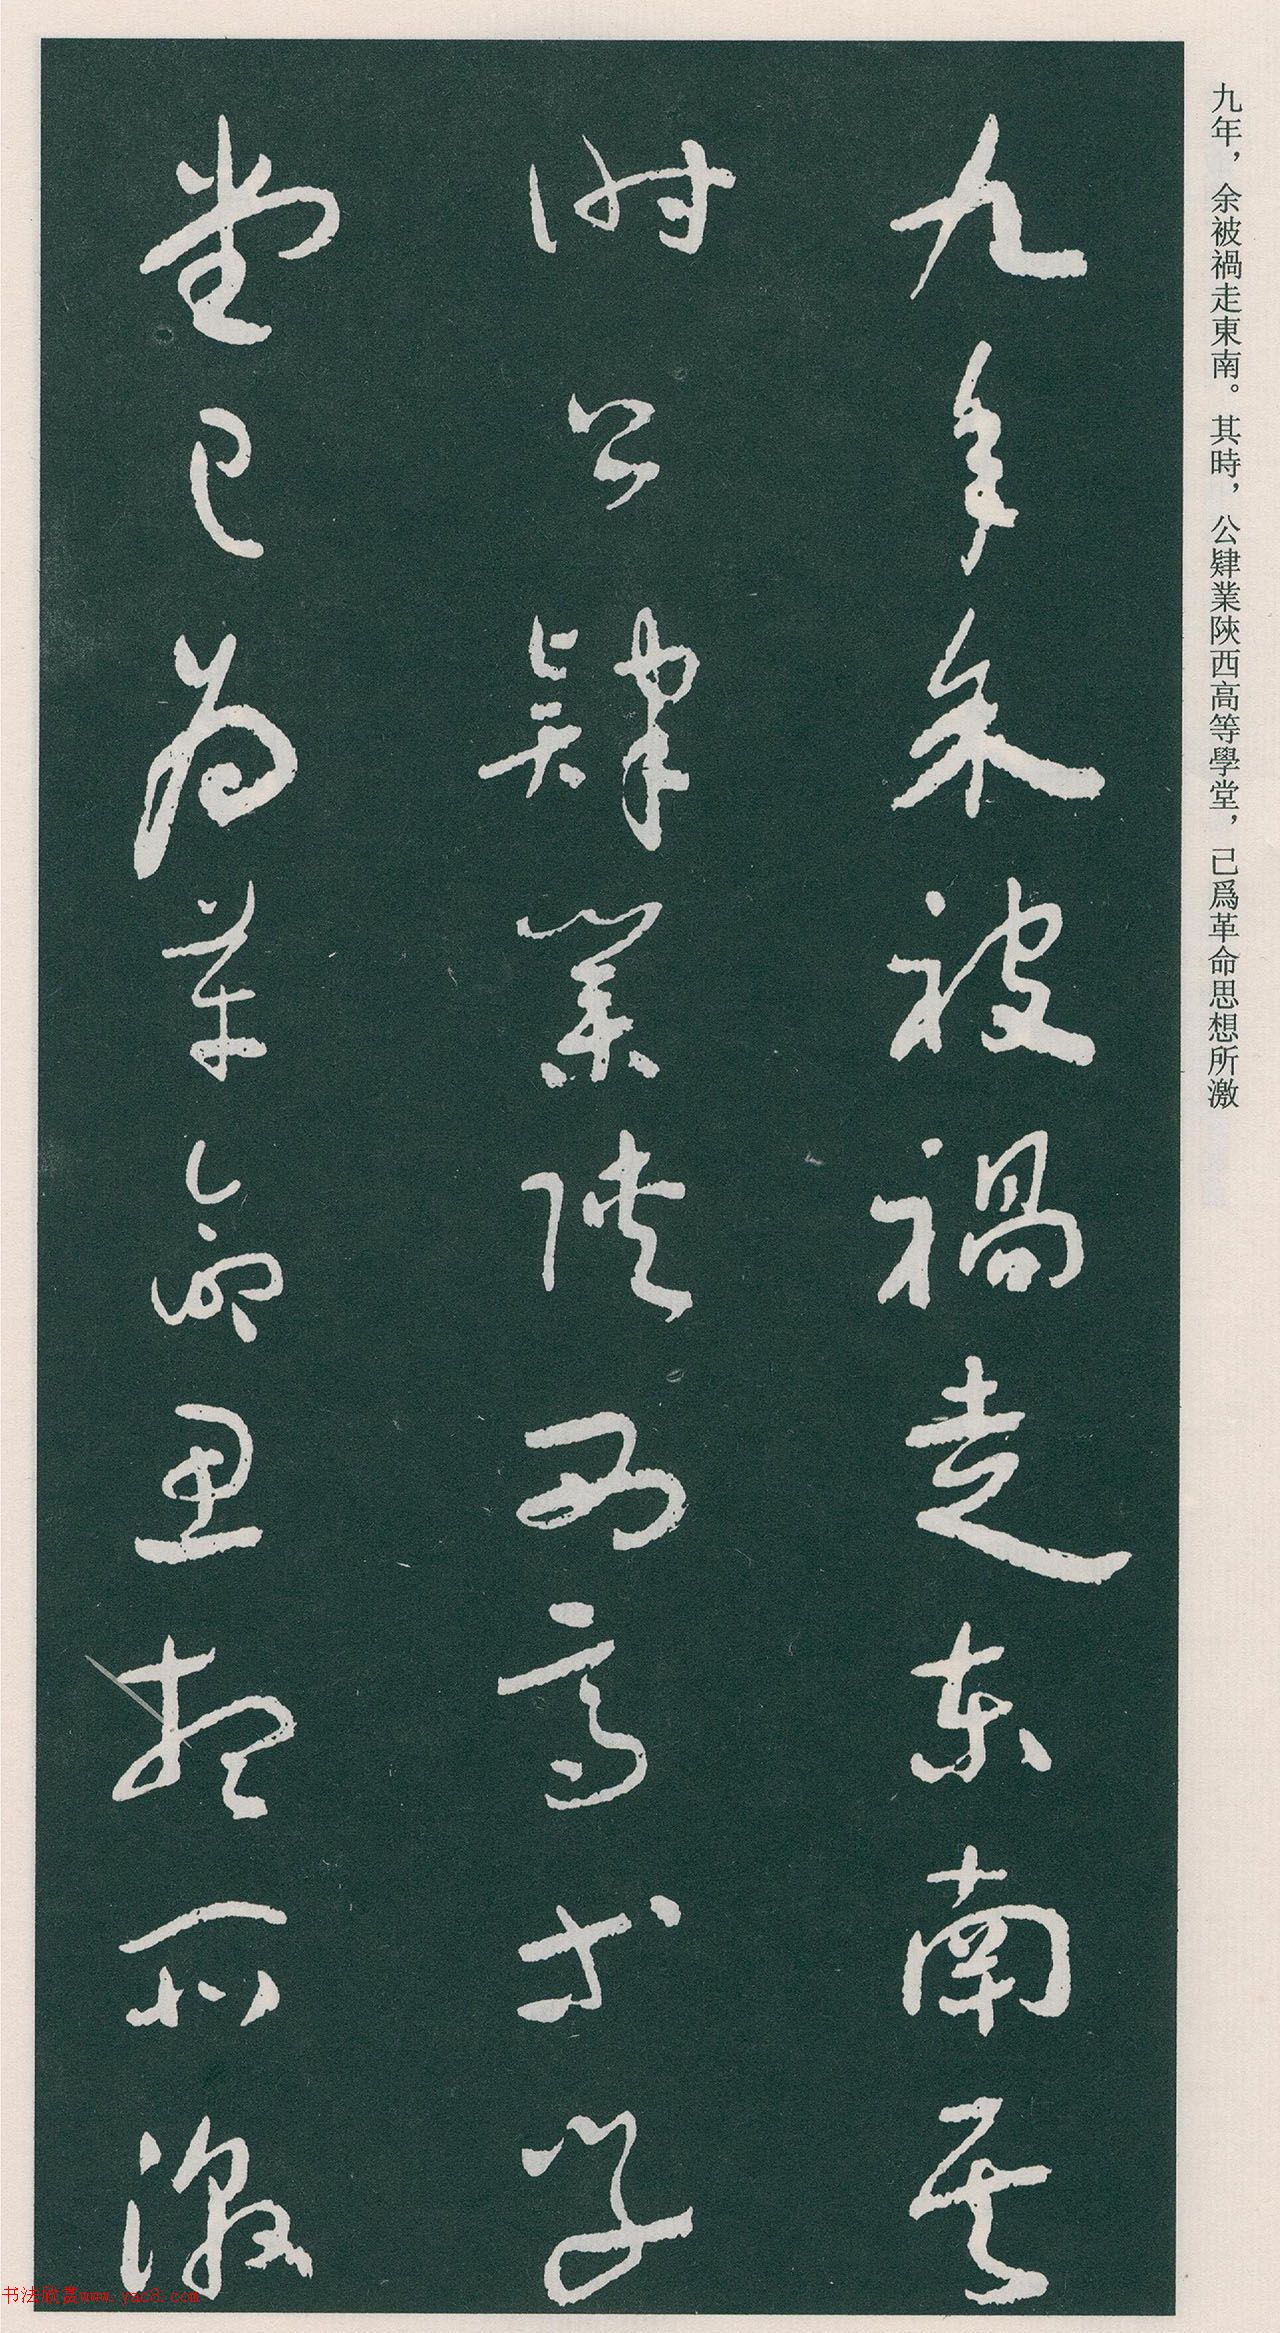 九年，余被禍走東南。其時，公肄業陝西高等學堂，已爲革命思想所激
九年余被禍走东南其
时公肄業陝西高等学
堂已为革命思想所激
书法欣赏www.yac8.com